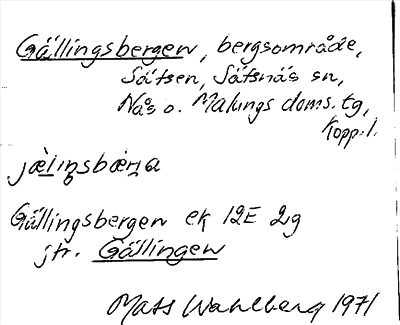 Gällingsbergen, bergsområde,
Sätsen, Säfsnäs sn,
Nås o. Malungs doms. tg,
Kopp. l.
jæ̀liŋsbæ̀r̩a
Gällingsbergen ek 12E 2g
jfr. Gällingen
Mats Wahlberg 1971